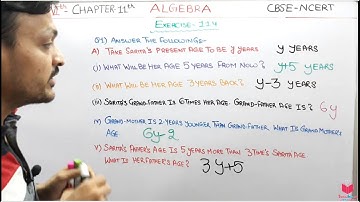 CHAPTER-11th ALGEBRA CBSE-NCERT
EXERCISE-11.4
Q1) ANSWER THE FOLLOWINGS-
A) TAKE SARITA'S PRESENT AGE TO BE y YEARS y YEARS
(i) WHAT WILL BE HER AGE 5 YEARS FROM NOW? y+5 YEARS
(ii) WHAT WILL BE HER AGE 3 YEARS BACK? y-3 YEARS
(iii) SARITA'S GRAND-FATHER IS 6 TIMES HER AGE. GRAND-FATHER AGE IS? 6y
GRAND-MOTHER IS 2-YEARS YOUNGER THAN GRAND-FATHER. WHAT IS GRAND MOTHER'S
AGE 6y-2
v) SARITA'S FATHER'S AGE IS 5 YEARS MORE THAN 3 TIME'S SARITA AGE
WHAT IS HER FATHER'S AGE? 3y+5